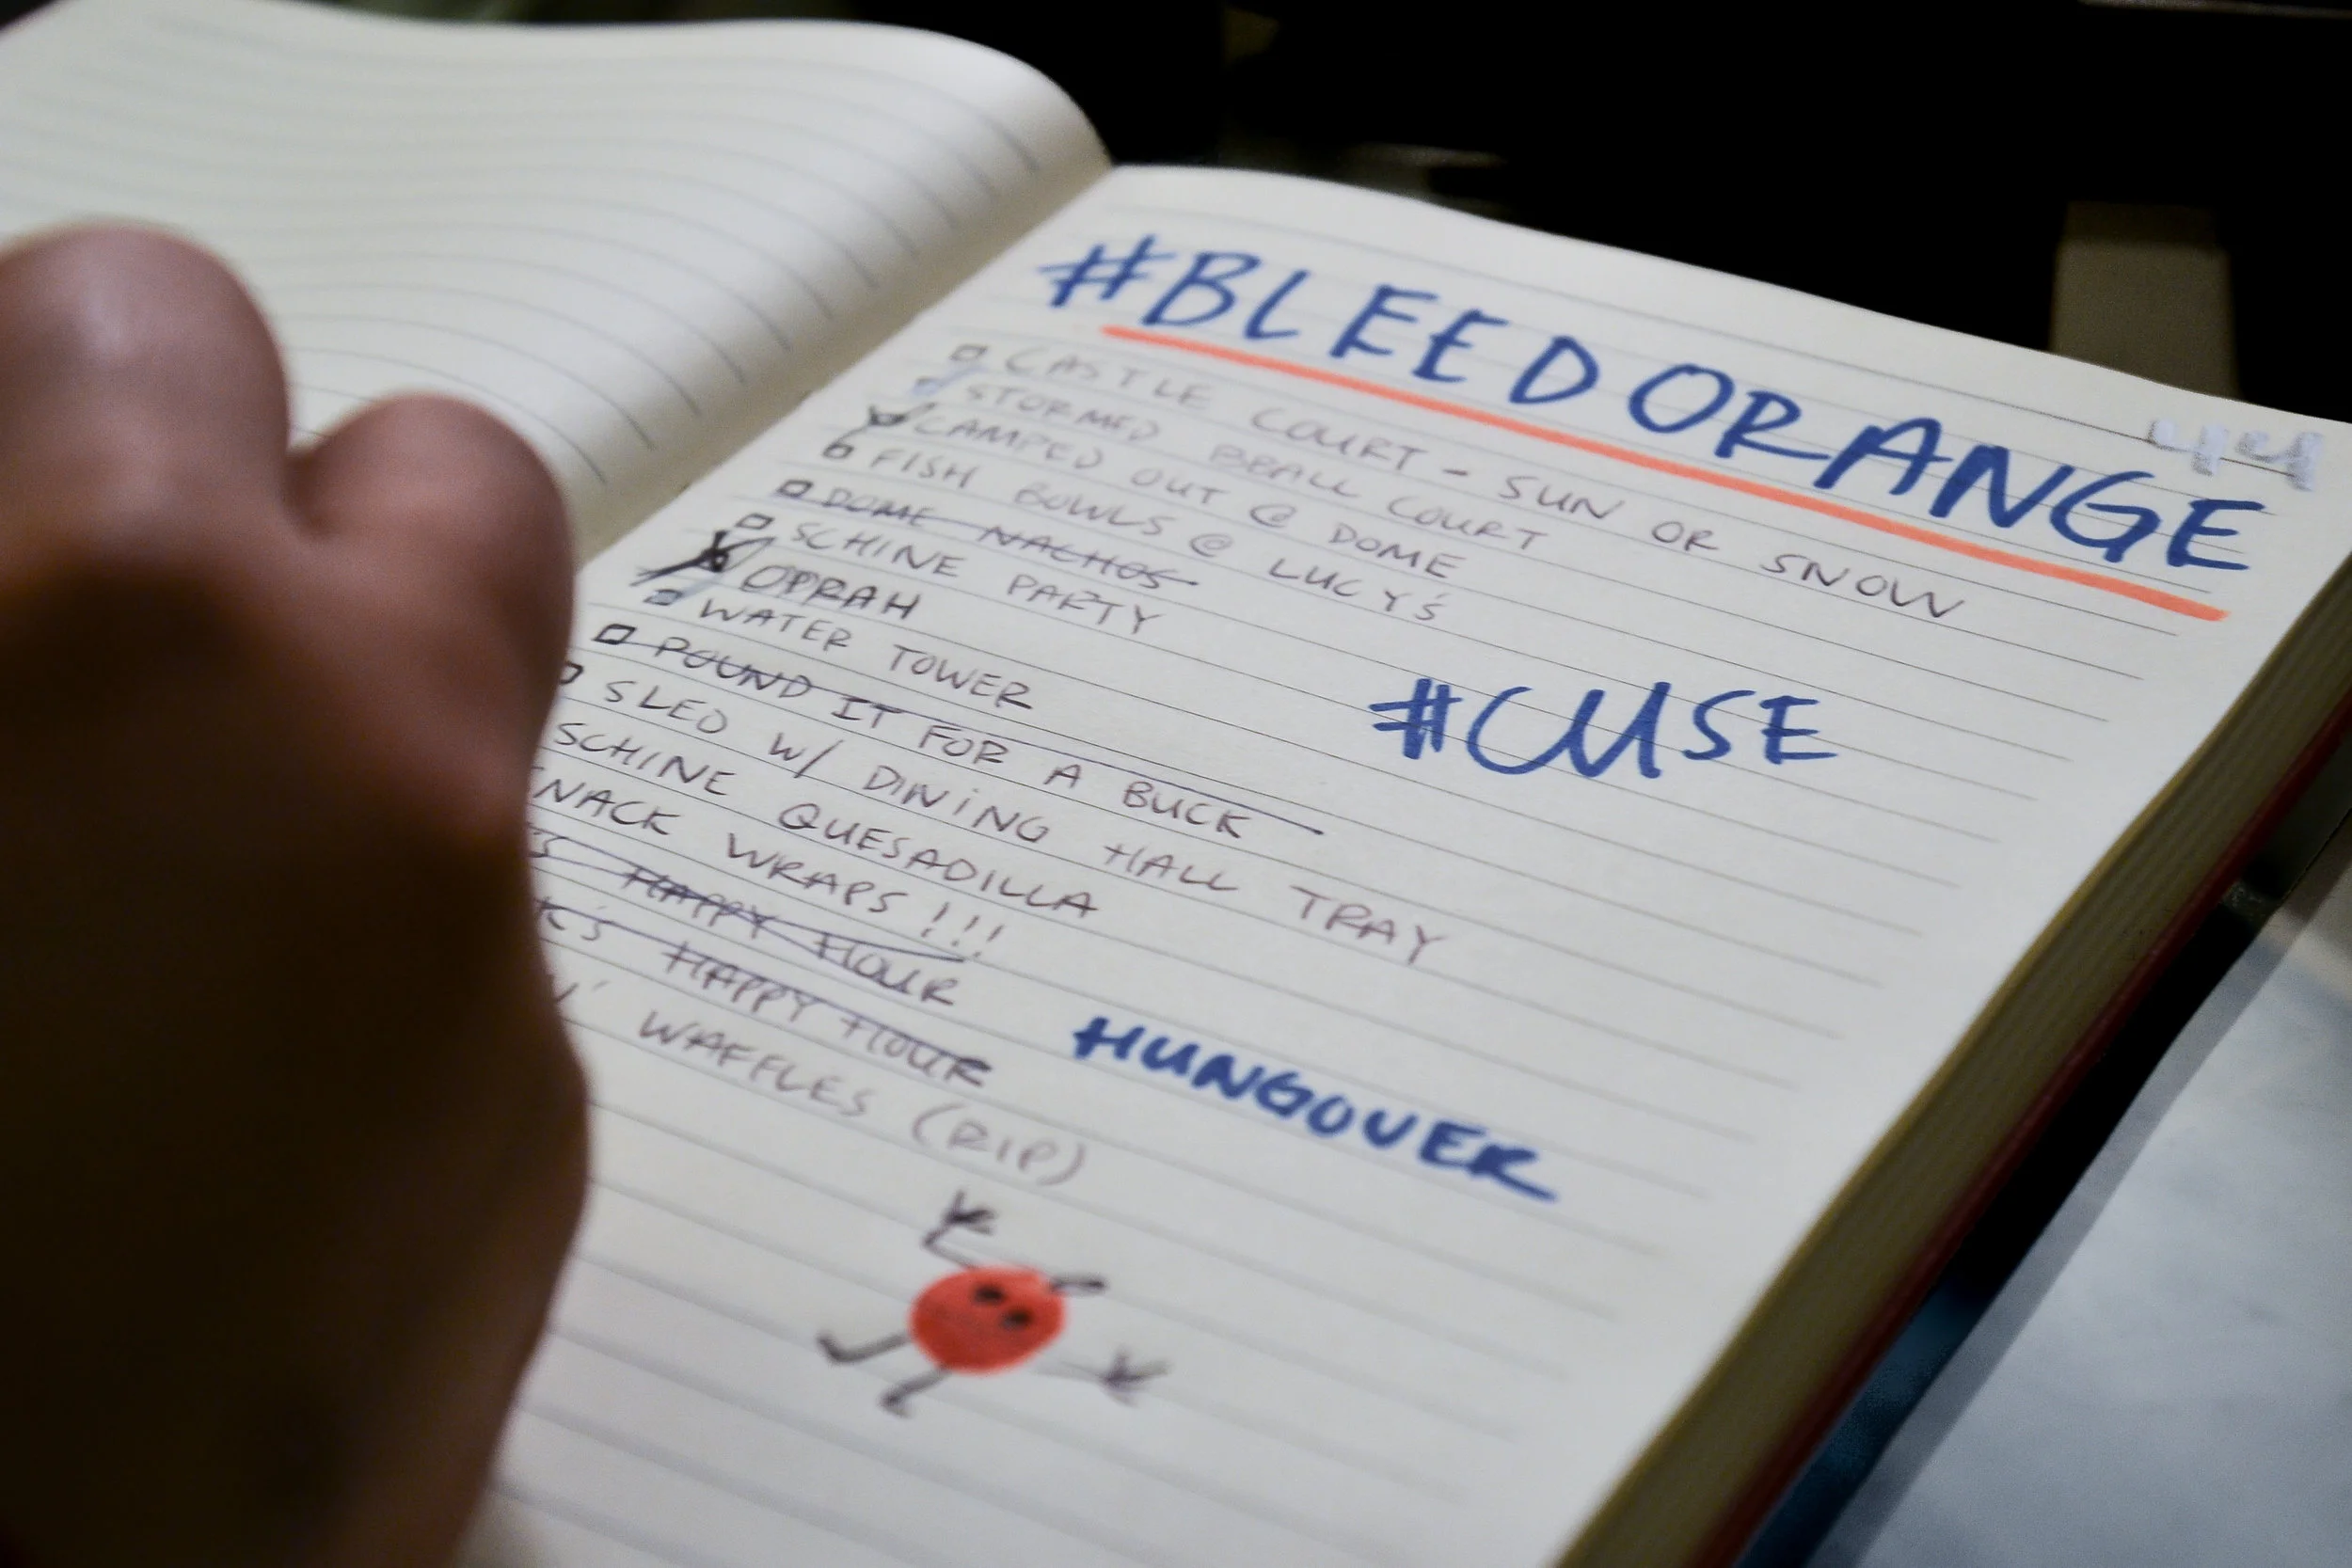 #BLEEDORANGE
CASTLE COURT - SUN OR SNOW
STORMED BBALL COURT
CAMPED OUT @ DOME
FISH BOWLS @ LUCY'S
DOME NACHOS
SCHINE PARTY
OPRAH
WATER TOWER
#CUSE
POUND IT FOR A BUCK
SLED W/ DINING HALL TRAY
SCHINE QUESADILLA
WRAPS!!!
HAPPY HOUR
HAPPY HOUR
WAFFLES (RIP)
HUNGOVER